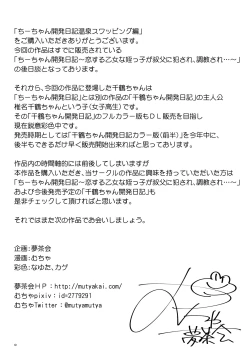 「ちーちゃん開発日記温泉スワッピング編」
をご購入いただきありがとうございます。
今回の作品はすでに販売されている
「ちーちゃん開発日記～恋する乙女な姪っ子が叔父に犯され、調教され…～」
の後日談となっております。
それから、今回の作品に登場した千鶴ちゃんは
「ちーちゃん開発日記」とは別の作品の「千鶴ちゃん開発日記」の主人公
椎名千鶴ちゃんという子(女子高生)です。
その「千鶴ちゃん開発日記」のフルカラー版もDL販売を目指し
現在鋭意彩色中です。
発売時期としては「千鶴ちゃん開発日記カラー版(前半)」を今年中に、
後半もできるだけ早く販売開始出来ればと思っております。
作品内の時間軸的には前後してしまいますが
本作品を購入いただき、当サークルの作品に興味を持っていただいた方は
「ちーちゃん開発日記～恋する乙女な姪っ子が叔父に犯され、調教され…～」
および今後発売予定の「千鶴ちゃん開発日記」も
是非チェックして頂ければと思います。
それではまた次の作品でお会いしましょう。
企画:夢茶会
漫画:むちゃ
彩色:なゆた、カゲ
夢茶会HP:http://mutyakai.com/
むちゃpixiv:id=2779291
むちゃTwitter:@mutyamutya
むちゃ
夢茶会